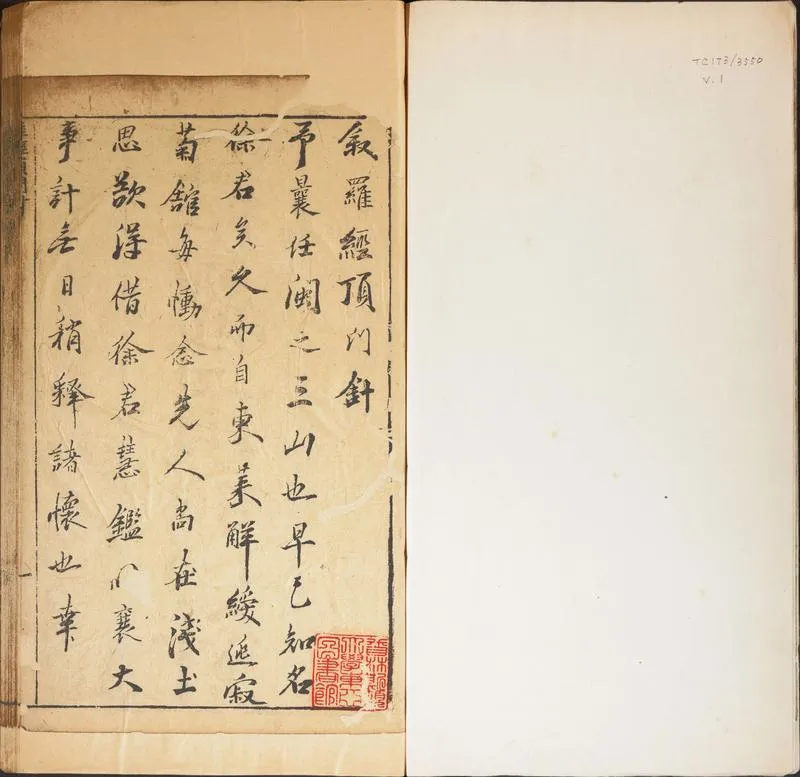 TC173/3550
V.1
叙羅經頂門針
予曩任閩之三山也早已知名
徐君矣久而自東萊解綬寂
菊舘每慟念先人尚在淺土
思欲得借徐君慧鑑以襄大
事計無日稍釋諸懷也幸
普林斯頓
大學東亞
圖書館